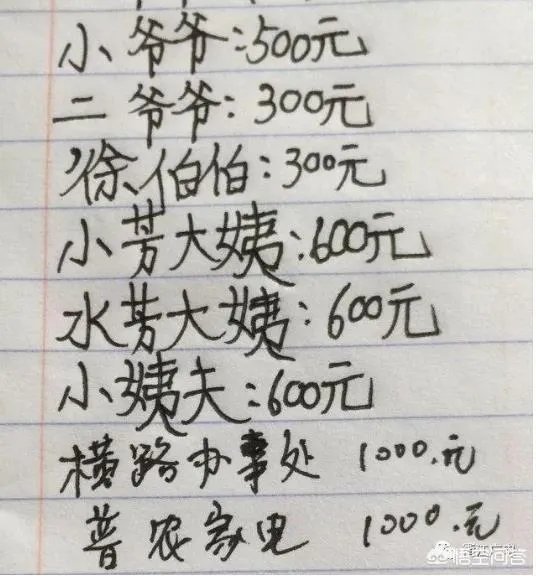 小爷爷:500元
二爷爷:300元
徐伯伯:300元
小芳大姨:600元
水芳大姨:600元
小姨夫:600元
横路办事处 1000.元
普农家电 1000.元
悟空问答